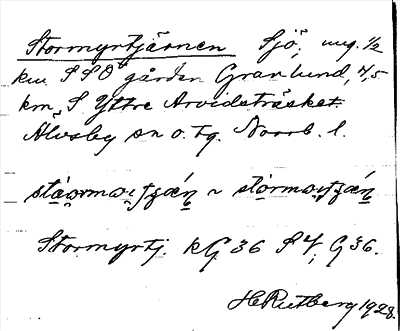 Stormyrtjärnen Sjö, ung. 1/2
km SSO gården Granlund, 4,5
km S Yttre Arvidsträsket.
Älvsby sn o. tg. Norrb. l.
Stormyrtj. kG 36 S4; G36.
H Rutberg 1928.